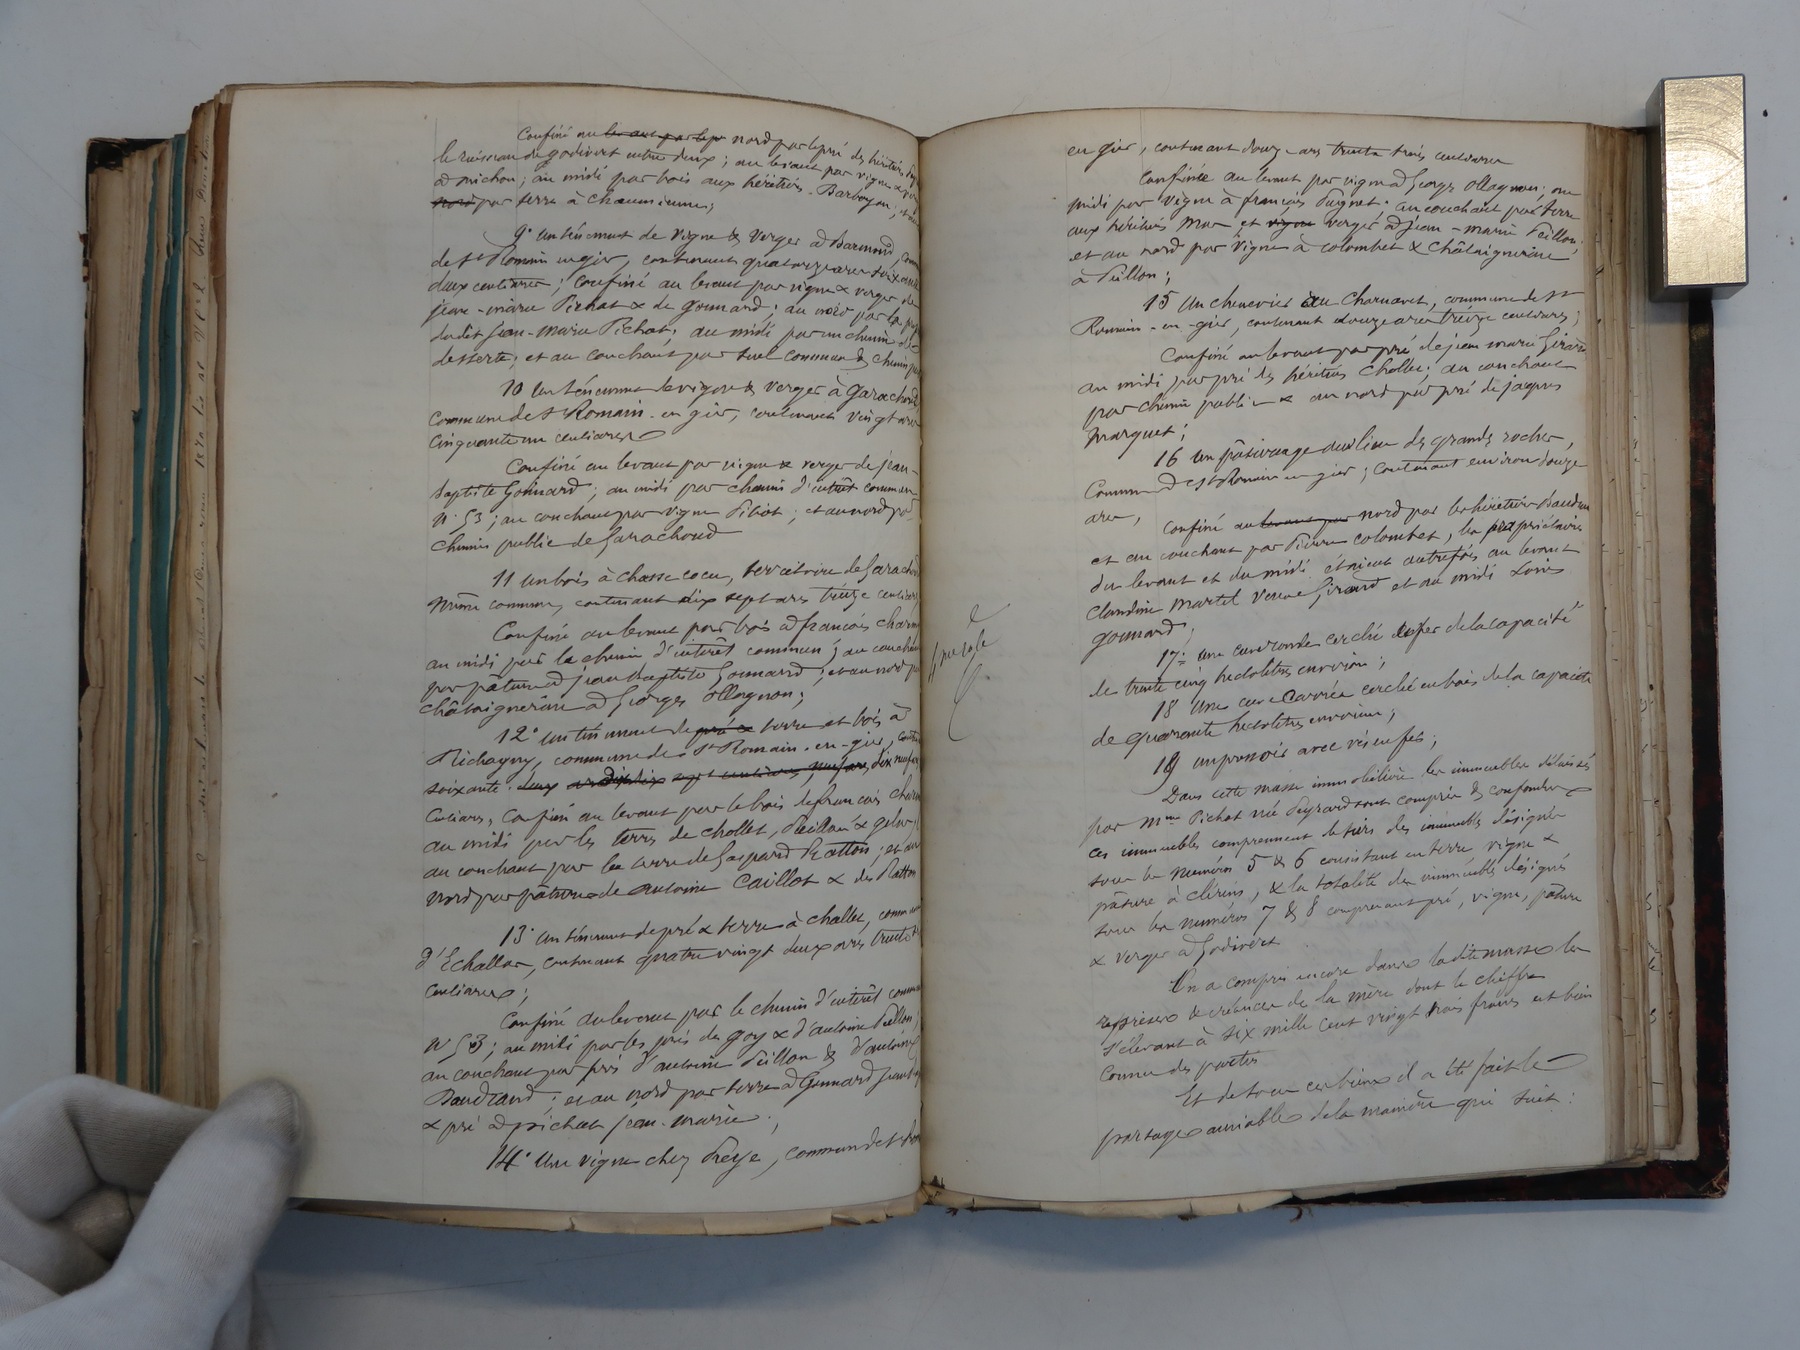 Confiné au levant par le pr nord par le pré des héritiers
le ruisseau de godivert entre deux ; au levant par vigne &
à michon ; au midi par bois aux héritiers Barboyon,
nord par terre à chaumienne ;
9° Un ténement de vigne & verger à Barmond,
de St Romain en gier, contenant quatorze ares soixante
deux centiares ; confiné au levant par vigne & verger de
jean-marie Pichat & de gonnard ; au nord par le pré
dudit jean-marie Pichat ; au midi par un chemin de
desserte ; et au couchant par suel commun & chemin
10 Un ténement de vigne & verger à garachoud
commune de St Romain-en gier, contenant vingt ares
cinquante un centiares
Confiné au levant par vigne & verger de jean-
baptiste Gonnard ; au midi par chemin d'intérêt commun
n° 53 ; au couchant par vigne Pitiot ; et au nord par
chemin public de Garachoud
11 Un bois à chasse cocu, territoire de Garachoud
même commune, contenant dix sept ares treize centiares
Confiné au levant par bois à françois
au midi par le chemin d'intérêt commun ; au couchant
par pâture à jean Baptiste Gonnard ; et au nord par
châtaigneraie à Georges Ollagnon ;
12° Un ténement de pré & terre et bois à
Richagny, commune de St Romain-en-gier,
soixante deux ares dix sept centiares, neuf ares, dix neuf
centiares, Confiné au levant par le bois de françois
au midi par les terres de chollet, Peillon & gelas,
au couchant par la terre de Gaspard Ratton ; et au
nord par pâture de antoine Caillot & des Ratton
13° Un ténement de pré & terre à challet, commune
d'Echallas, contenant quatre vingt deux ares trente
centiares ;
Confiné au levant par le chemin d'intérêt commun
N° 53 ; au midi par les prés de Goy & d'antoine Peillon ;
au couchant par prés d'antoine Peillon & d'antoine
Baudrand ; et au nord par terre à Gonnard
& pré à pichat jean-marie ;
14° Une vigne chez Freye, commune de St
en gier, contenant douze ares trente trois centiares
Confinée au levant par vigne à Georges Ollagnon ; au
midi par vigne à françois Puignet ; au couchant par terre
aux héritiers Mas et vigne verger à jean-marie Peillon ;
et au nord par vigne à colombet & châtaigneraie
à Peillon ;
15 Un chenevier au Charnavet, commune de St
Romain-en-gier, contenant douze ares treize centiares ;
Confiné au levant par pré de jean marie Girard
au midi par pré des héritiers Chollet ; au couchant
par chemin public & au nord par pré de jaques
marquet ;
16 Un pâturage au lieu des grands rocher,
Commune de St Romain en gier ; contenant environ douze
ares,
Confiné au levant par nord par les héritiers Baudrand
et au couchant par Pierre colombet, les propriétaires
du levant et du midi étaient autrefois au levant
Claudine Martel Veuve Girard et au midi Louis
gonnard ;
17° une cuve ronde cerclé en fer de la capacité
de trente cinq hectolitres environ ;
18 Une cuve carrée cerclée en bois de la capacité
de quarante hectolitres environ ;
19 un pressoir avec vis en fer ;
Dans cette masse immobilière les immeubles délaissés
par Mme Pichat née Peyrard sont compris & confondus
ces immeubles comprennent le tiers des immeubles désignés
sous les numéros 5 & 6 consistant en terre, vigne &
pâture à clérins, & la totalité des immeubles désignés
sous les numéros 7 & 8 comprenant pré, vigne, pâture
& verger à Godivert
On a compris encore dans ladite masse les
reprises & créances de la mère dont le chiffre
s'élevant à six mille cent vingt trois francs est bien
connu des parties
Et de tous ces biens il a été fait le
partage amiable de la manière qui suit :